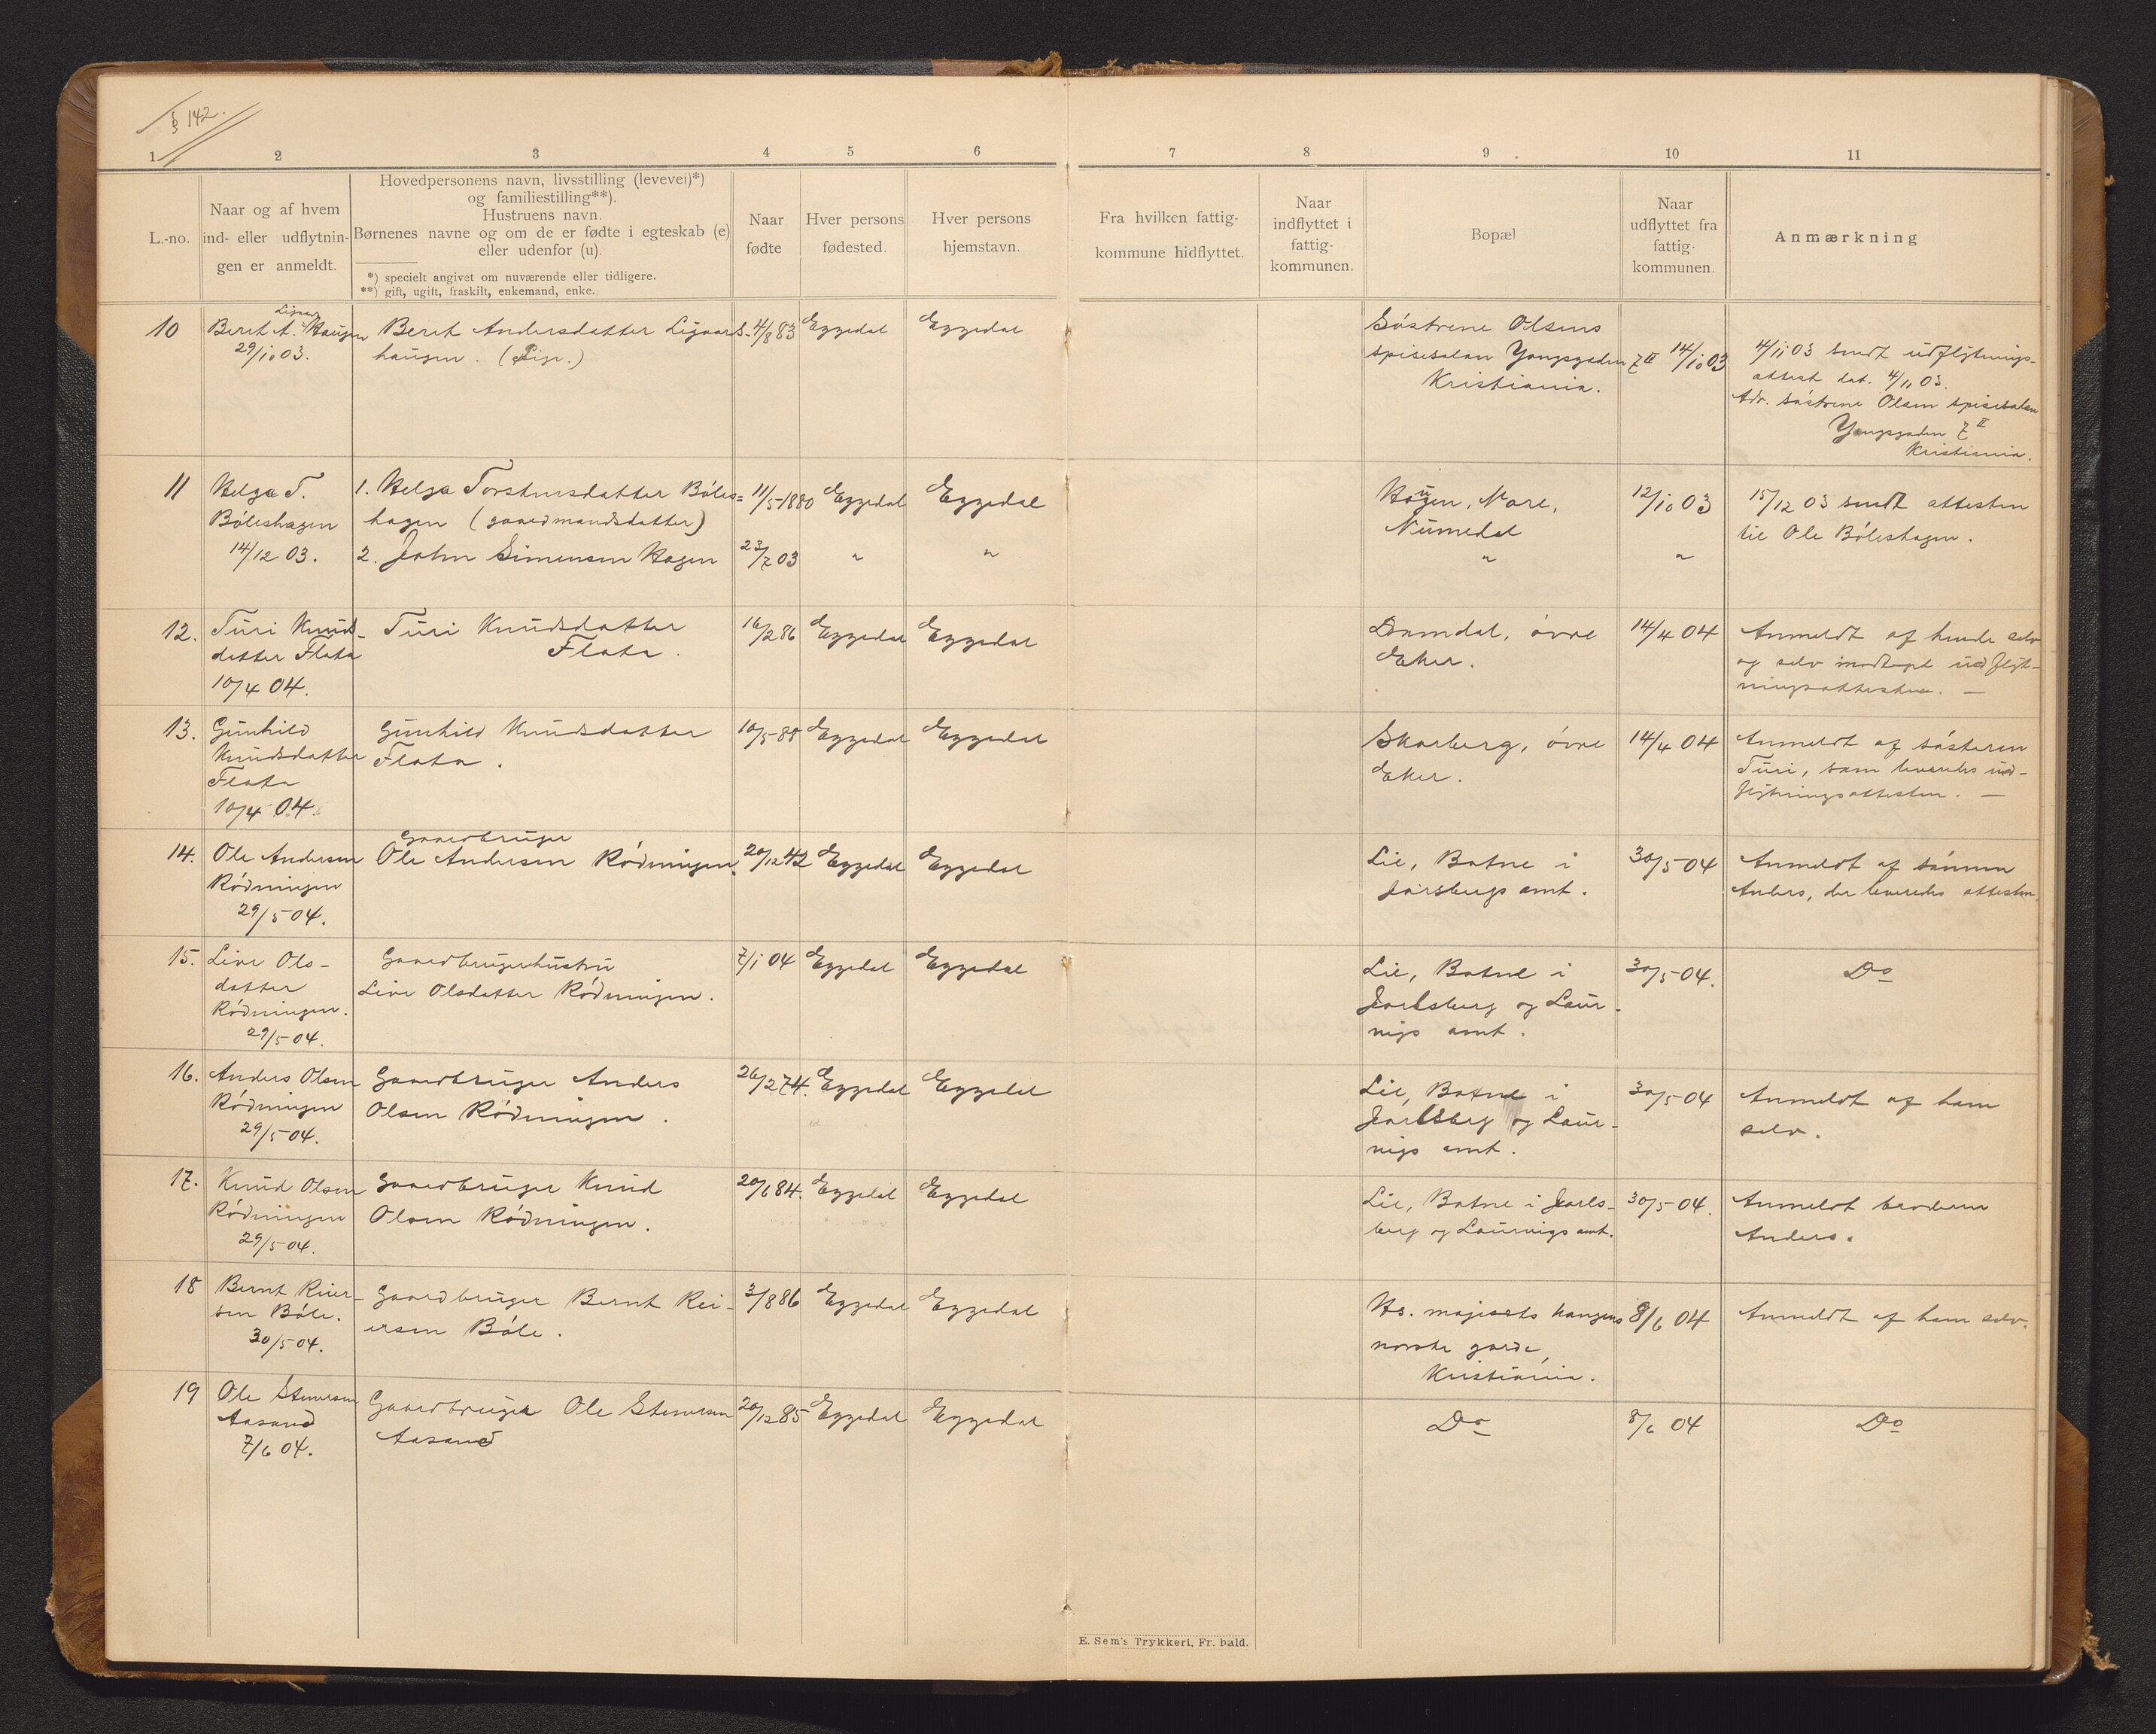 § 142.
1 2 3 4 5 6 7 8 9 10 11
L.-no.
Naar og af hvem
ind- eller udflytnin-
gen er anmeldt.
Hovedpersonens navn, livsstilling (levevei)*)
og familiestilling**).
Hustruens navn.
Børnenes navne og om de er fødte i egteskab (e)
eller udenfor (u).
*) specielt angivet om nuværende eller tidligere.
**) gift, ugift, fraskilt, enkemand, enke.
Naar
fødte
Hver persons
fødested.
Hver persons
hjemstavn.
Fra hvilken fattig-
kommune hidflyttet.
Naar
indflyttet i
fattig-
kommunen.
Bopæl
Naar
udflyttet fra
fattig-
kommunen.
Anmærkning
10
Berit A. Haugen
29/10 03.
Berit Andersdatter Ligaards-
haugen. (Pige.)
4/8 83
Eggedal
Eggedal
Søstrene Olsens
spisesalon Youngsgaden 7 II
Kristiania.
14/10 03
4/11 03 sendt udflytnings-
attest dat. 4/11 03.
Adr. søstrene Olsen spisesalon
Youngsgaden 7 II
Kristiania.
11
Helga T.
Bøleshagen
14/12 03.
1. Helga Torstensdatter Bøles=
hagen (gaardmandsdatter)
2. John Simensen Hagen
11/5 1880
23/7 03
Eggedal
"
Eggedal
"
Haugen, Nore,
Numedal
"
12/10 03
"
15/12 03 sendt attesten
til Ole Bøleshagen.
12.
Turi Knuds-
datter Flata
10/4 04.
Turi Knudsdatter
Flata.
16/2 86
Eggedal
Eggedal
Damdal, øvre
Eker.
14/4 04
Anmeldt af hende selv
og selv modtaget udflyt-
ningsattesten. —
13.
Gunhild
Knudsdatter
Flata
10/4 04.
Gunhild Knudsdatter
Flata.
10/5 88
Eggedal
Eggedal
Skarberg, øvre
Eker.
14/4 04
Anmeldt af søsteren
Turi, som leveredes ud-
flytningsattesten. —
14.
Ole Andersen
Rødningen
29/5 04.
Gaardbruger
Ole Andersen Rødningen.
20/12 42
Eggedal
Eggedal
Lie, Botne i
Jarsbergs amt.
30/5 04
Anmeldt af sønnen
Anders, der leveredes attesten
15.
Live Ols-
datter
Rødningen.
29/5 04.
Gaardbrugerhustru
Live Olsdatter Rødningen.
7/1 04
Eggedal
Eggedal
Lie, Botne i
Jarlsberg og Laur-
vigs amt.
30/5 04.
Do
16.
Anders Olsen
Rødningen
29/5 04.
Gaardbruger Anders
Olsen Rødningen.
26/2 74.
Eggedal
Eggedal
Lie, Botne i
Jarlsberg og Laur-
vigs amt.
30/5 04
Anmeldt af ham
selv.
17.
Knud Olsen
Rødningen
29/5 04.
Gaardbruger Knud
Olsen Rødningen.
20/6 84.
Eggedal
Eggedal
Lie, Botne i Jarls-
berg og Laurvigs amt.
30/5 04.
Anmeldt broderen
Anders.
18
Bernt Reier-
sen Bøle.
30/5 04.
Gaardbruger Bernt Rei-
ersen Bøle.
3/8 86
Eggedal
Eggedal
Hs. majestets kongens
norske garde,
Kristiania.
8/6 04
Anmeldt af ham selv.
19
Ole Stenersen
Aasand
7/6 04.
Gaardbruger Ole Stenersen
Aasand
20/12 85
Eggedal
Eggedal
Do
8/6 04
Do
E. Sem's Trykkeri, Fr. hald.